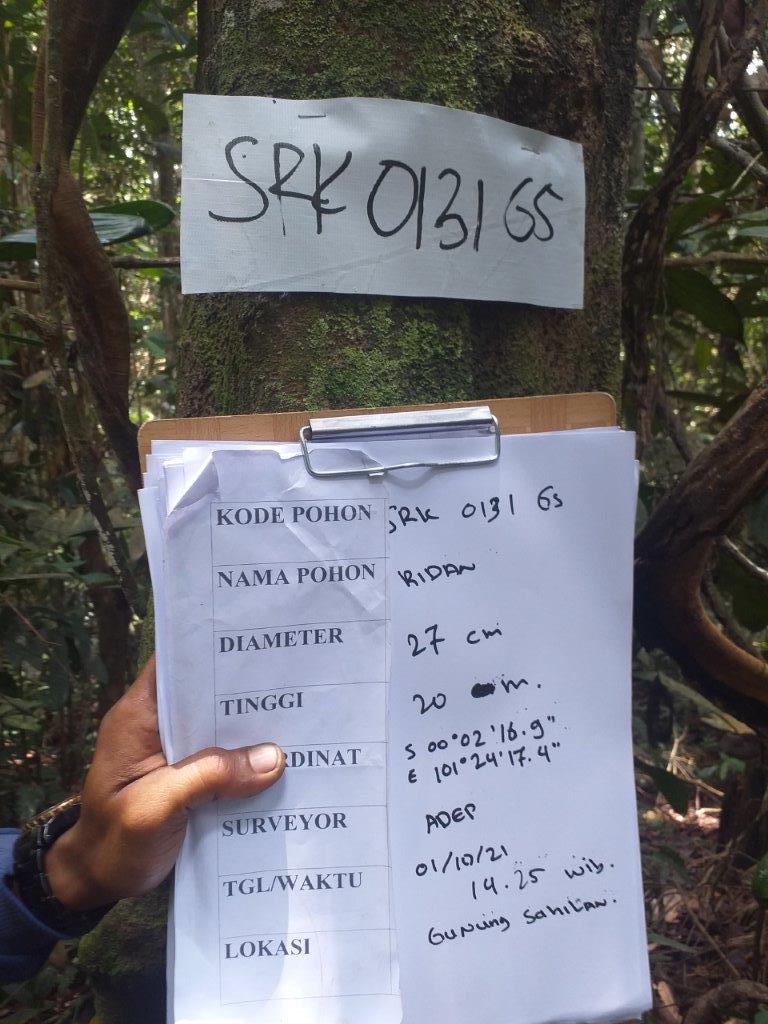 SRK 0131 GS
KODE POHON SRK 0131 GS
NAMA POHON RIDAN
DIAMETER 27 cm
TINGGI 20 m.
RDINAT S 00°02'16.9"
E 101°24'17.4"
SURVEYOR ADEP
TGL/WAKTU 01/10/21
14.25 wib.
LOKASI GUNUNG SAHILAN.